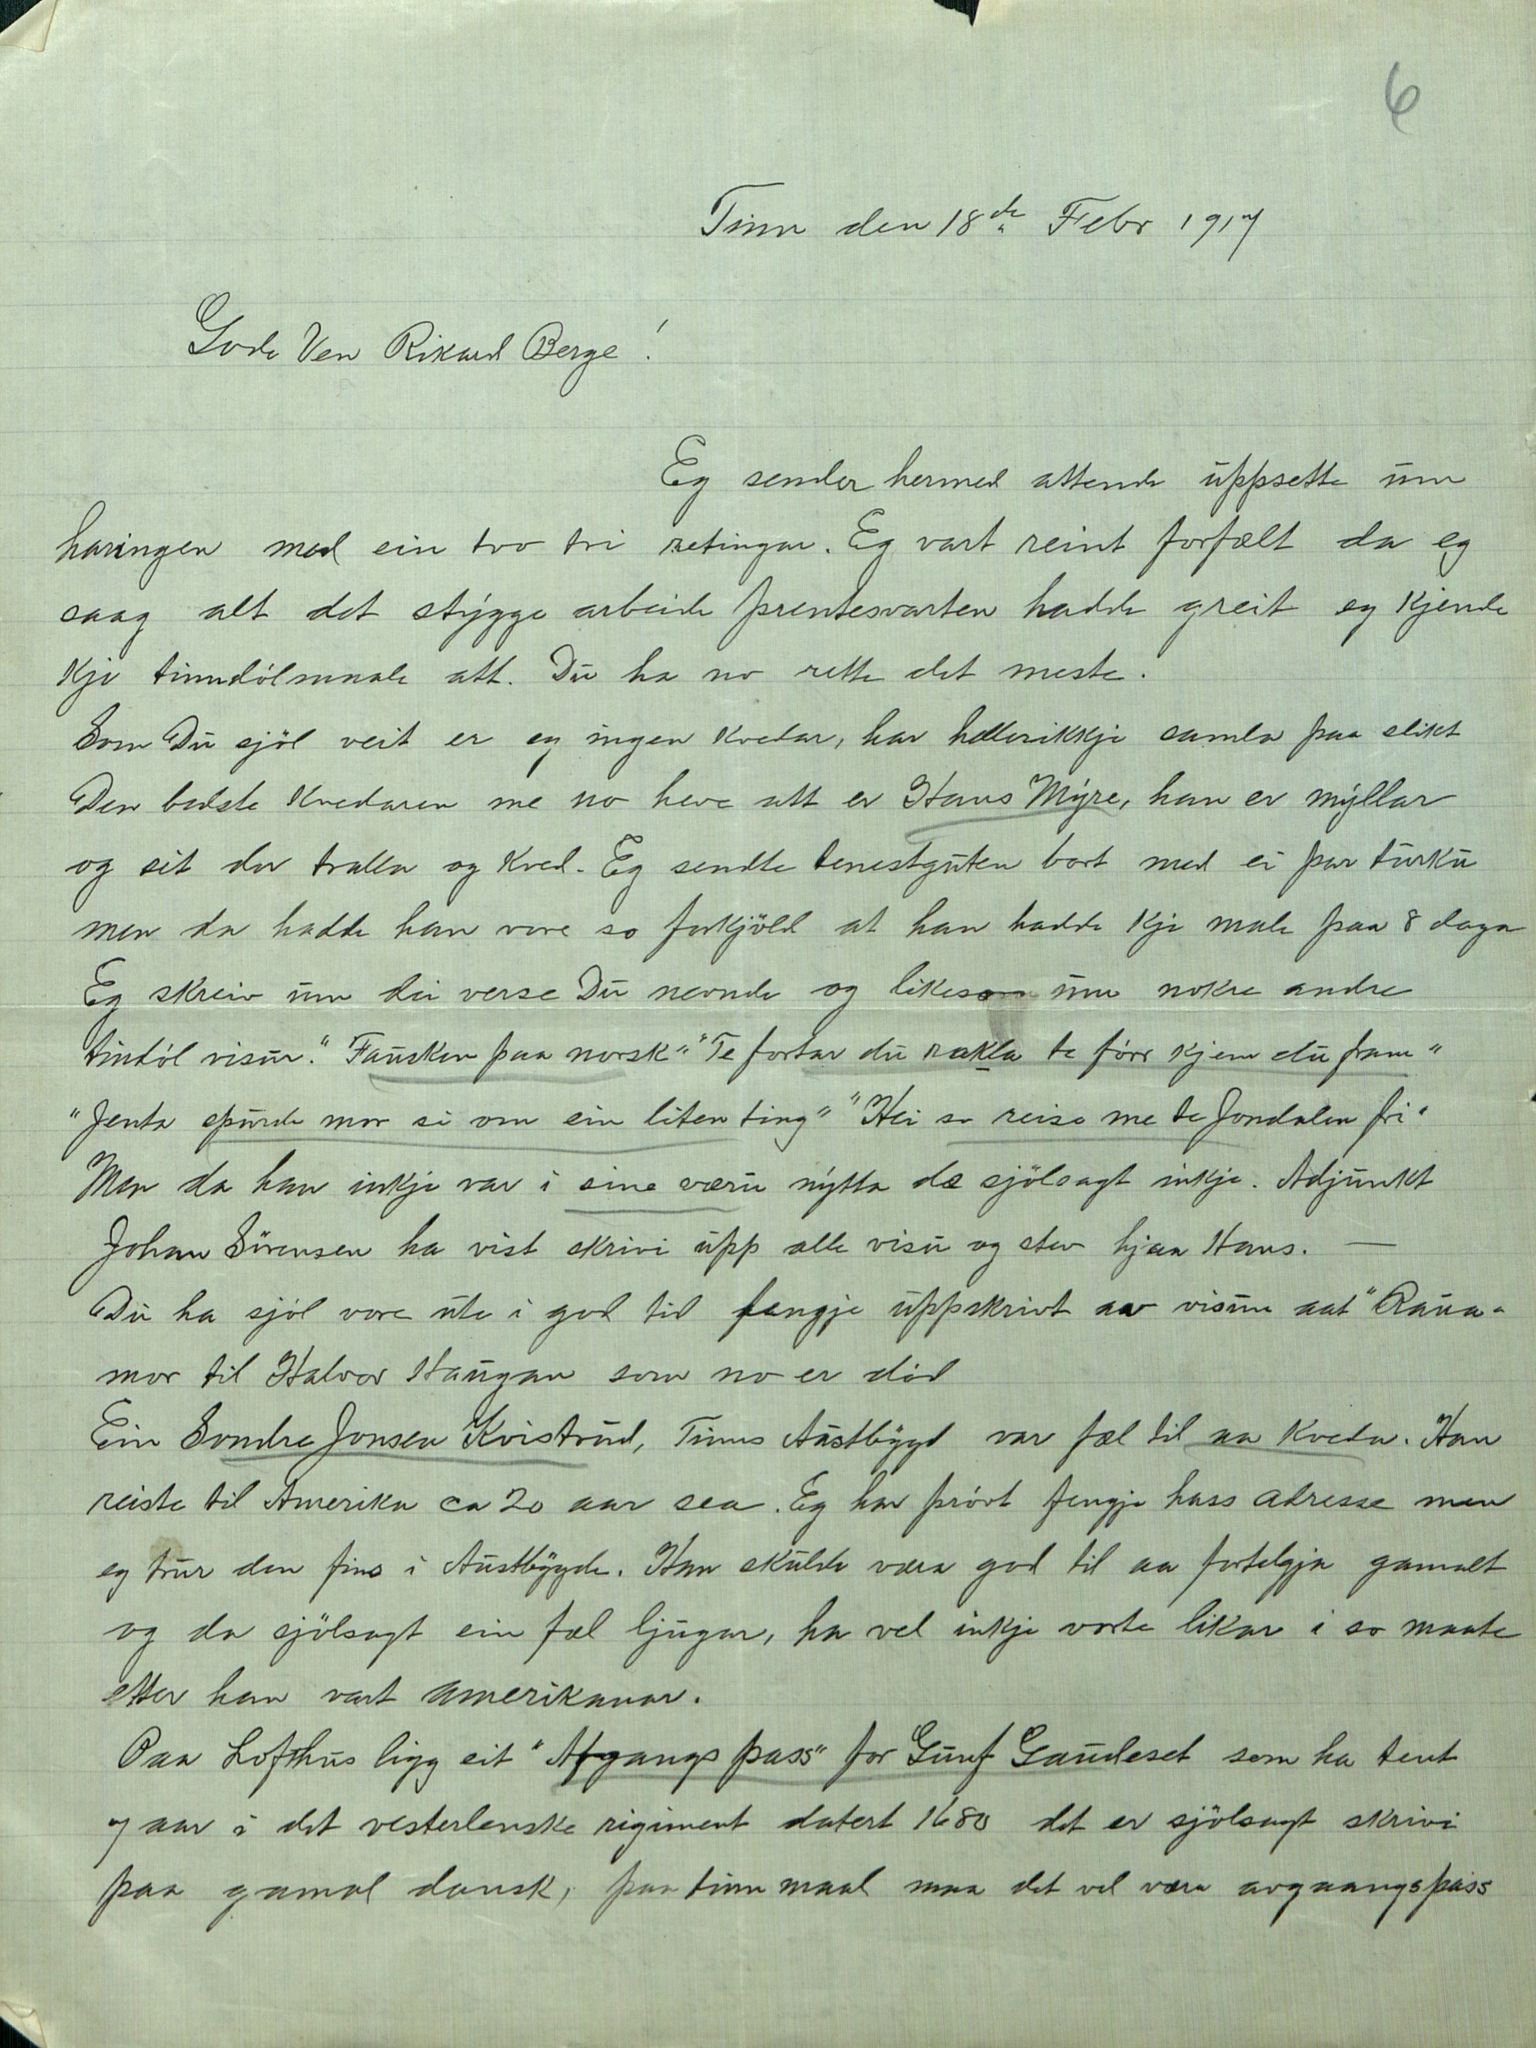 6
Tinn den 18de Febr 1917
Gode Ven Rikard Berge!
Eg sender hermed attende uppsette um
haringen med ein tvo tri retingar. Eg vart reint forfælt da eg
saag alt det stygge arbeide prentesvarten hadde greit eg kjende
kje tinndölmaale att. Du ha no rette det meste.
Som Du sjöl veit er eg ingen kvedar, har hellerikkje samla paa slikt
Den bedste kvedaren me no heve att er Hans Myre, han er myllar
og sit der tralla og kved. Eg sendte tenestguten bort med ei par turku
men da hadde han vore so forkjöld at han hadde kje male paa 8 daga
Eg skreiv um dei verse Du nevnde og likeso um nokre andre
tindöl visur. "Fausken paa norsk" "Te fortar du rækla te förr kjem du fram"
"Jenta spurde mor si om ein liten ting" "Hei so reise me te Jondalen fri"
Men da han inkje var i sine væru nytta de sjölsagt inkje. Adjunkt
Johan Sörensen ha vist skrivi upp alle visu og stev hjaa Hans. —
Du ha sjöl vore ute i god tid fengje uppskrivt av visune aat "Raua-
mor til Halvor Haugan som no er död
Ein Sondre Jonsen Kvistrud, Tinns Austbygd var fæl til aa kveda. Han
reiste til Amerika ca 20 aar sea. Eg har prövt fengje hass adresse men
eg trur den fins i Austbygde. Han skulde væra god til aa fortelgja gamalt
og da sjölsagt ein fæl ljugar, ha vel inkje vorte likar i so maate
etter han vart amerikanar.
Paa Lofthus ligg eit "Afgangs pass" for Gunf Gaudeset som ha tent
7 aar i det vesterlenske rigiment datert 1680 det er sjölsagt skrivi
paa gamal dansk, paa tinnmaal maa det vel være avgaangspass